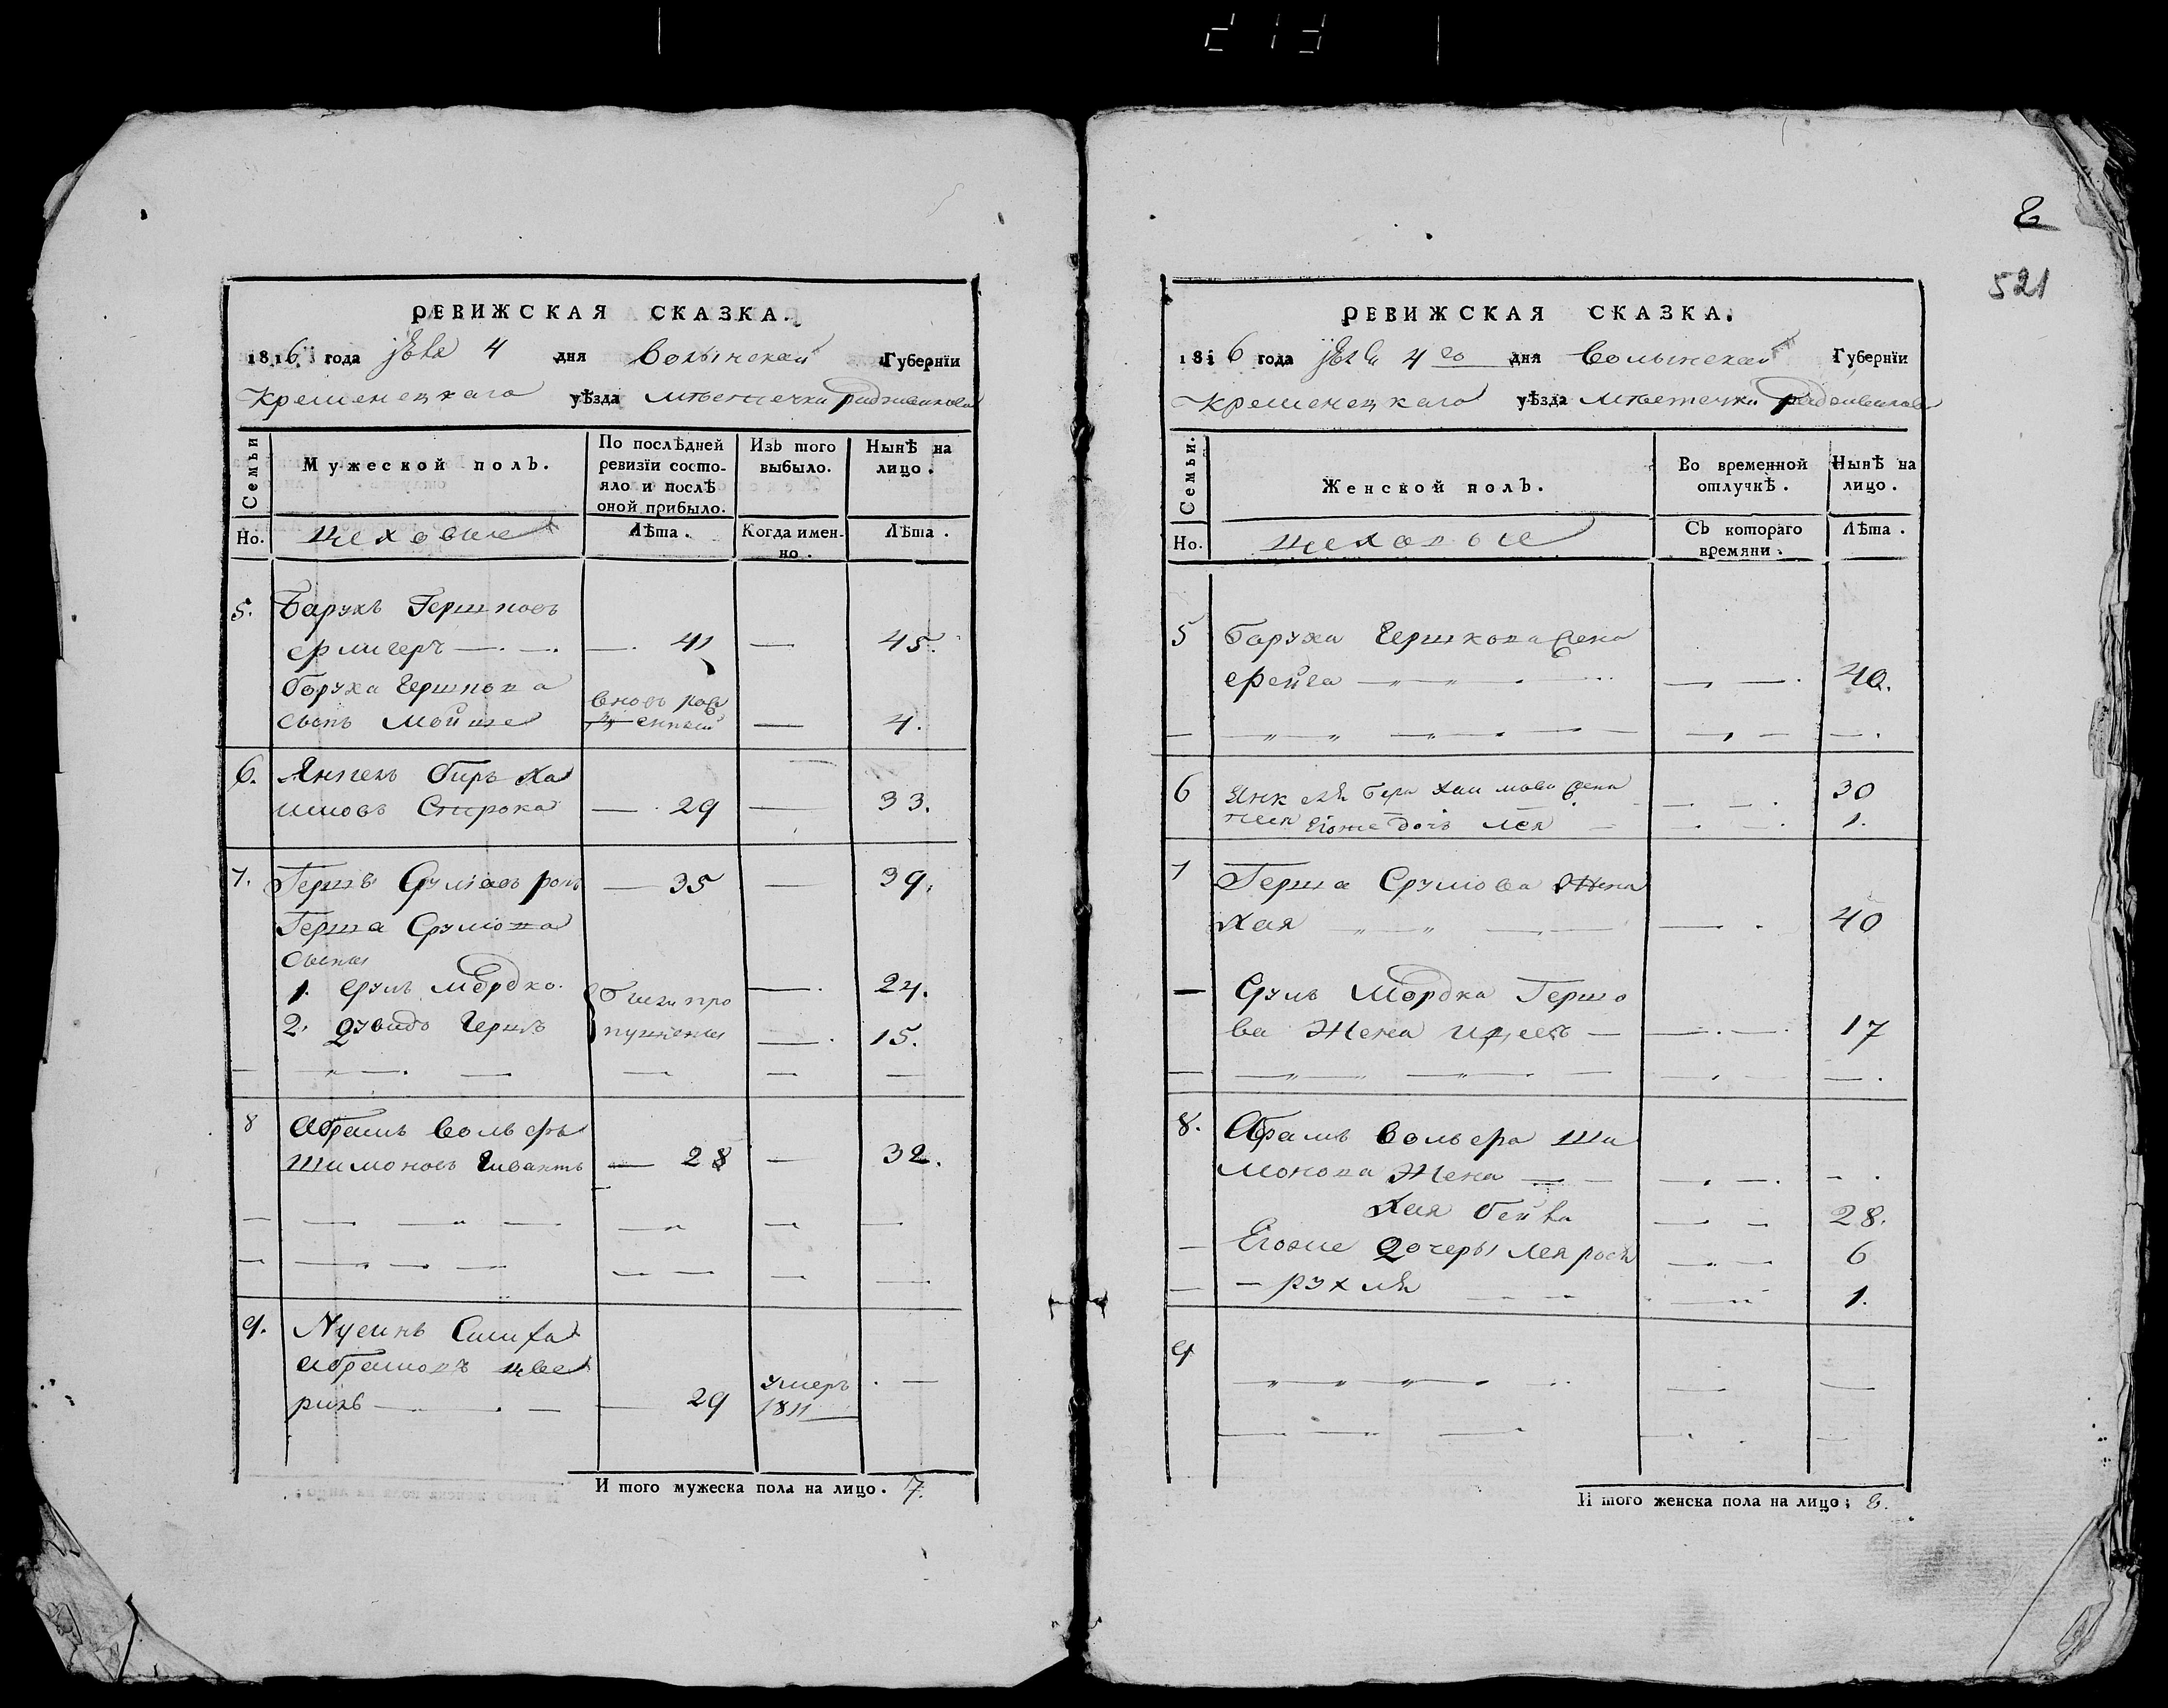 РЕВИЖСКАЯ СКАЗКА.
1816 года 4 дня Волынской Губернїи
Кременецкаго уѣзда мѣстечка радзивилова
Семьи
Мужеской полъ.
По послѣдней ревизїи состояло и послѣ оной прибыло.
Изъ того выбыло.
Нынѣ на лицо.
Но.
цеховые
Лѣта.
Когда именно.
Лѣта.
5. Барухъ Гершковъ
— 41 — 45.
боруха Гершкова
сынъ Мойше вновь рожденный — 4.
6. Янкель биръ Ха
имовъ — 29 — 33.
7. Гершъ Срулiовъ — 35 — 39.
Герша Срулiова
сыны
1. Сруль Мордко. — 24.
2. Дувидъ Гершъ были пропущены — 15.
8 Абрамъ Вольфъ
Шимоновъ — 28 — 32.
9. Нусинъ Симха
Абрамовъ цве
рихъ — 29 умеръ 1811 —
И того мужеска пола на лицо. 7.
2
521
РЕВИЖСКАЯ СКАЗКА.
1816 года 4го дня Волынской Губернїи
Кременецкаго уѣзда мѣстечка радзивилова
Семьи.
Женской полъ.
Во временной отлучкѣ.
Нынѣ на лицо.
Но.
цеховые
Съ котораго времяни.
Лѣта.
5 Баруха Гершкова жена
Фейга — 40.
6 Янкеля Бера Хаимова жена 30
Егоже дочь Лея 1.
7 Герша Срулiова жена
Хая 40
— Сруль Мордка Гершо
ва Жена — 17
8. Абрамъ Вольфа Ши
монова Жена —
Хая бейла 28.
— Егоже Дочеры Лея рося 6
— рухля 1.
9
И того женска пола на лицо; 8.